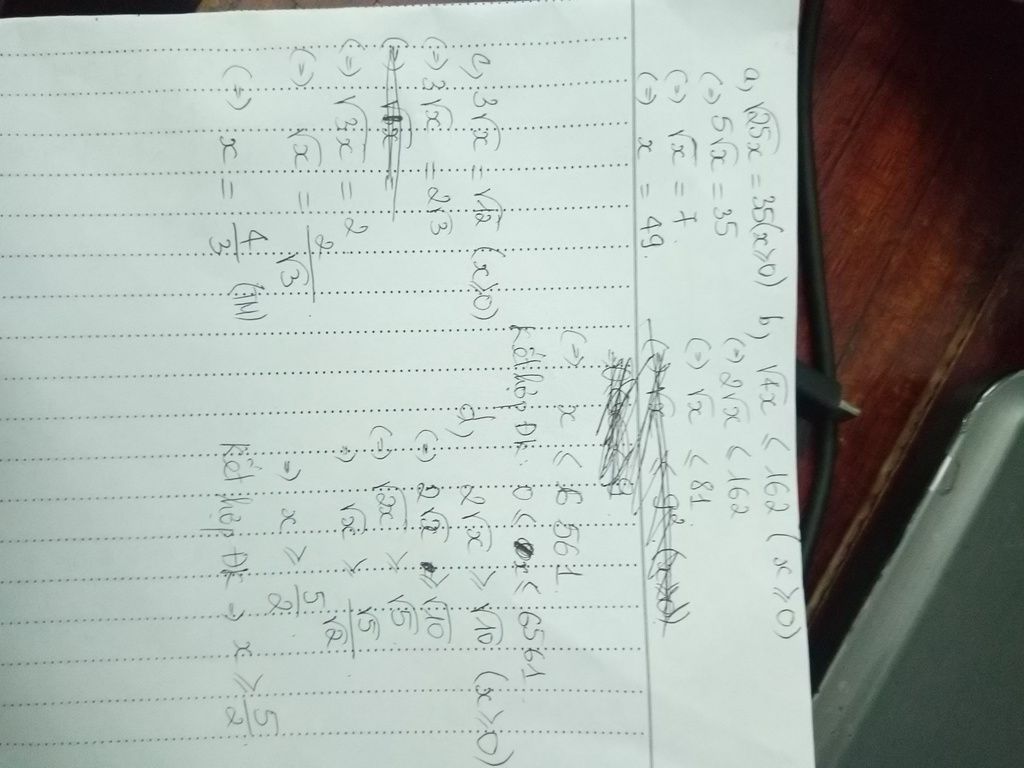 a, √25x = 35 (x ≥ 0)
(=) 5√x = 35
(=) √x = 7
(=) x = 49.
b, √4x ≤ 162 (x ≥ 0)
(=) 2√x ≤ 162
(=) √x ≤ 81
(=) x ≤ 6561
Kết hợp ĐK: 0 ≤ x ≤ 6561
c, 3√x = √12 (x ≥ 0)
(=) 3√x = 2√3
(=) √3x = 2
(=) √x = 2/√3
(=) x = 4/3 (TM)
d, 2√x ≥ √10 (x ≥ 0)
(=) ≥ √10
(=) √2x ≥ √5
=) √x ≥ √5/√2
=) x ≥ 5/2
Kết hợp ĐK =) x ≥ 5/2